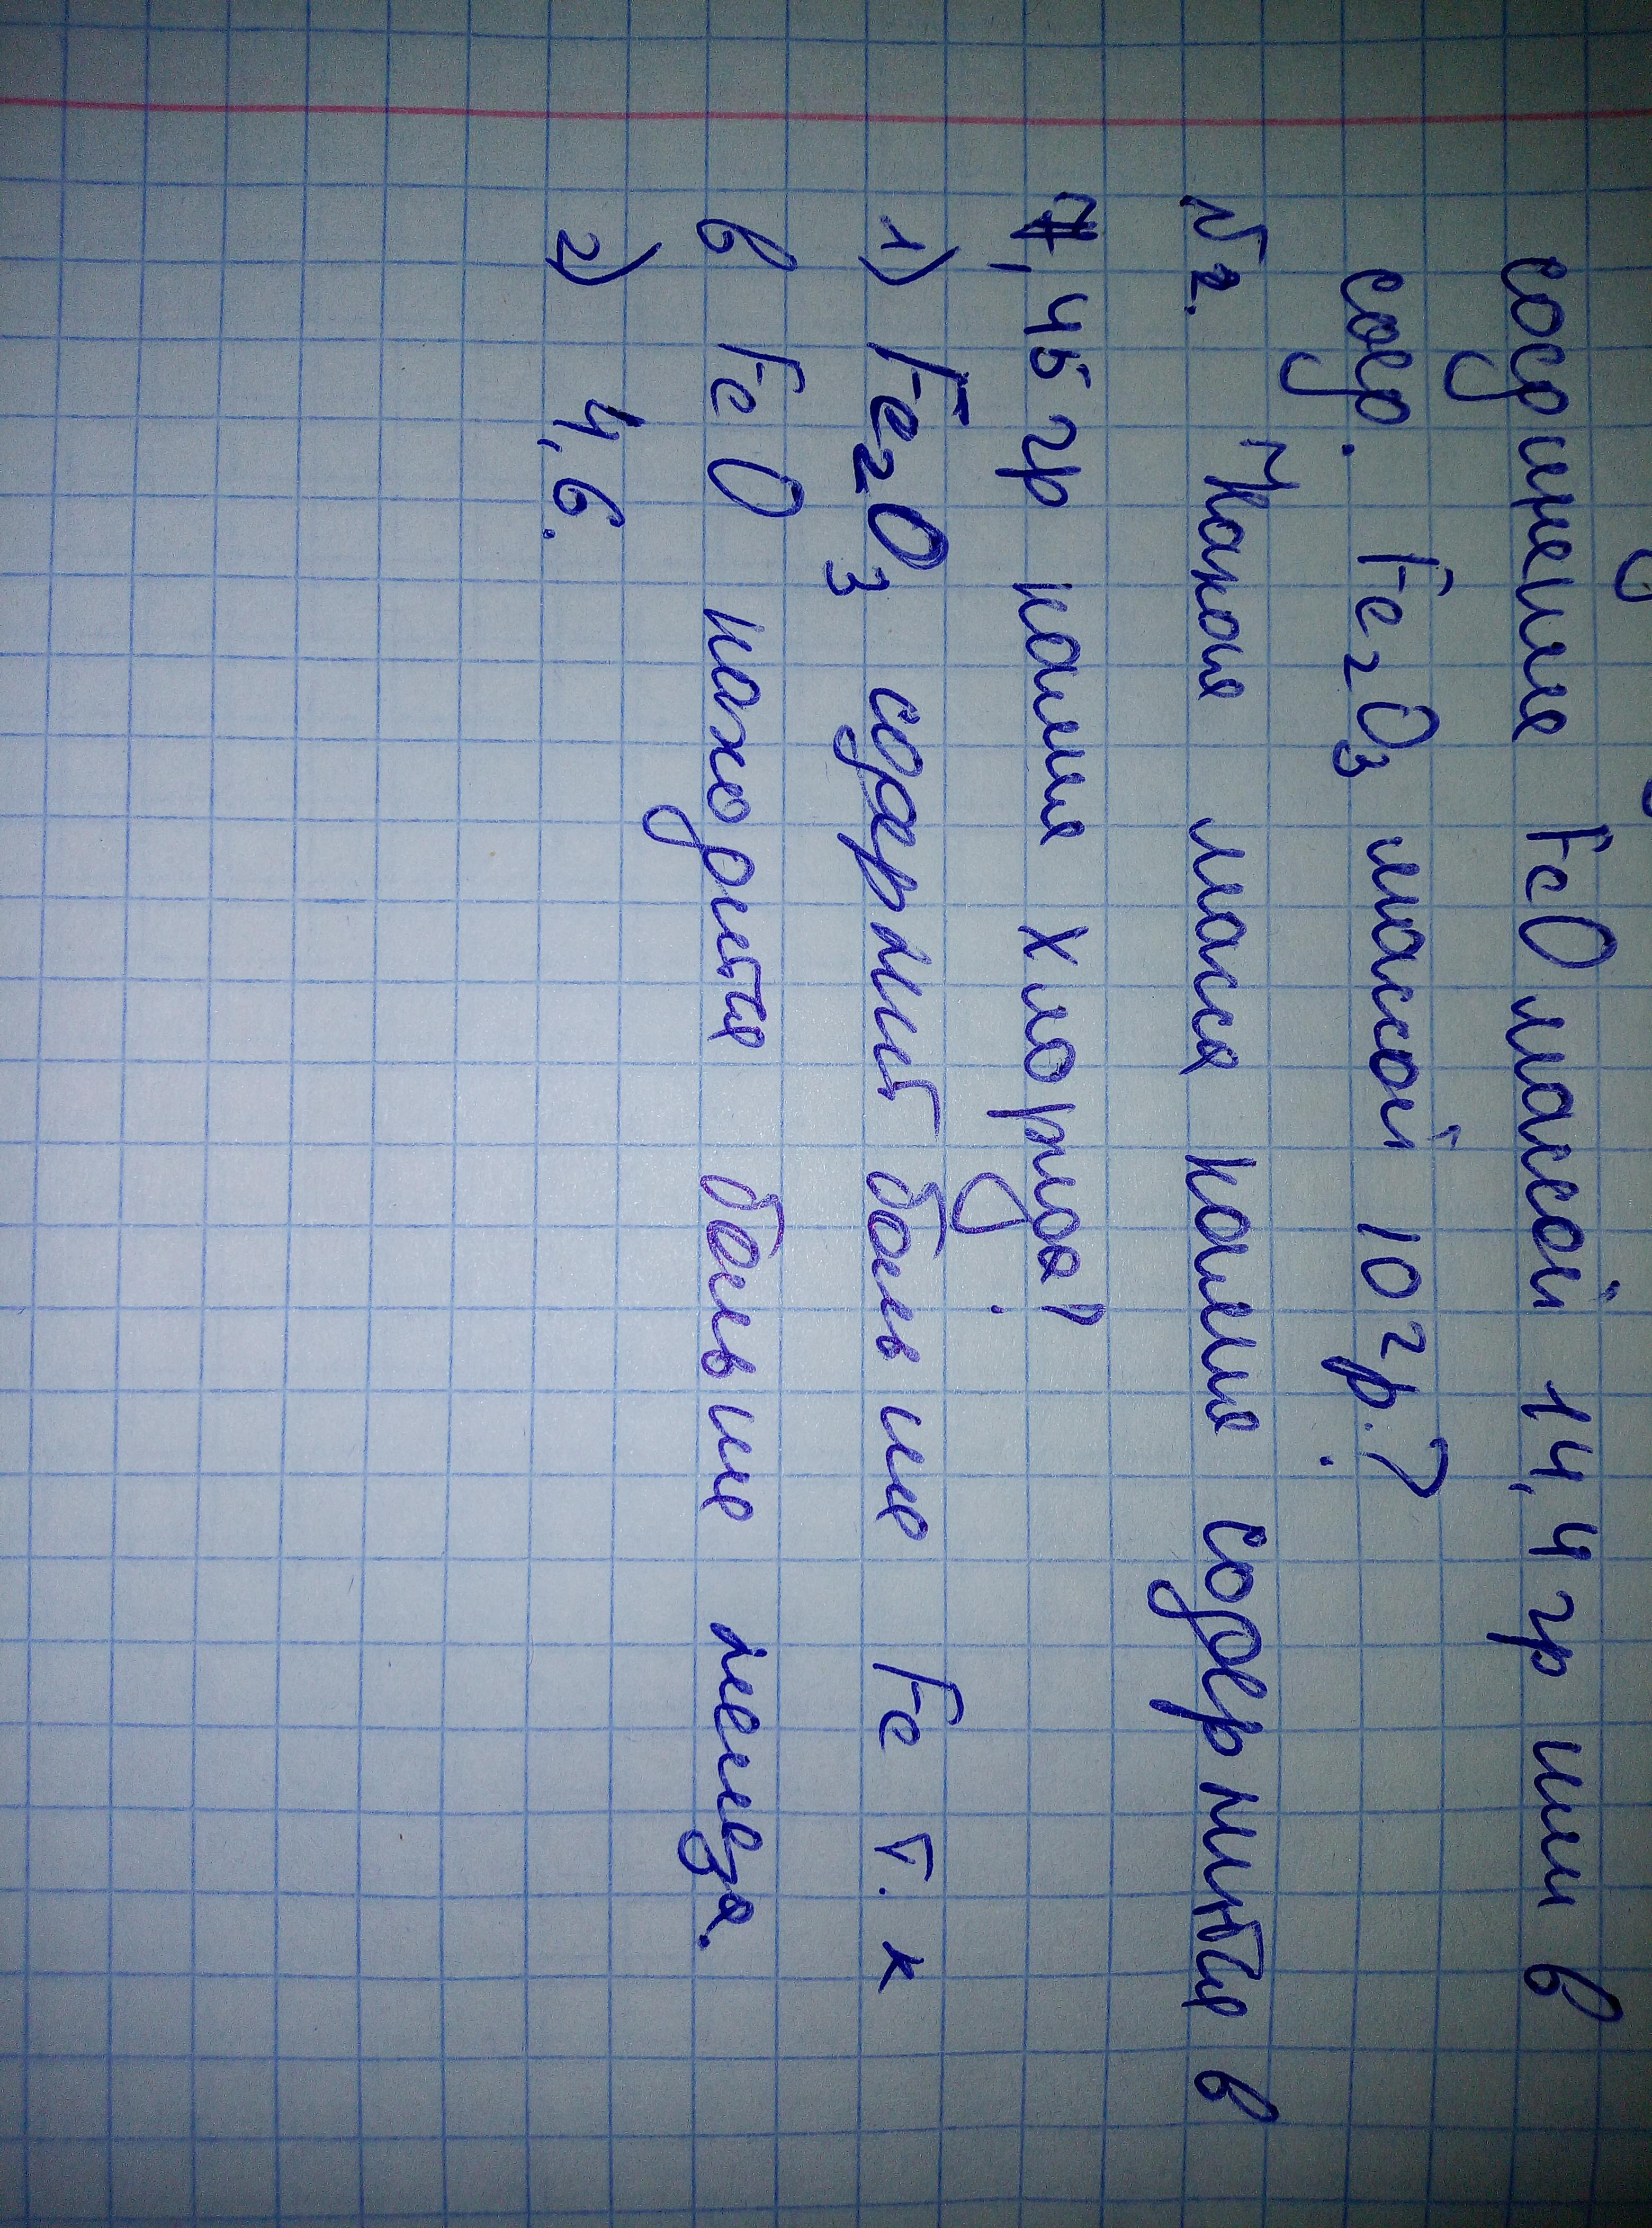 соединение FeO массой 14,4 гр или в
соед. Fe2O3 массой 10 гр.?
№2. Какая масса калия содержится в
7,45 гр калия хлорида?
1) Fe2O3 содержит больше Fe т.к
в FeO находится больше железа.
2) 4,6.